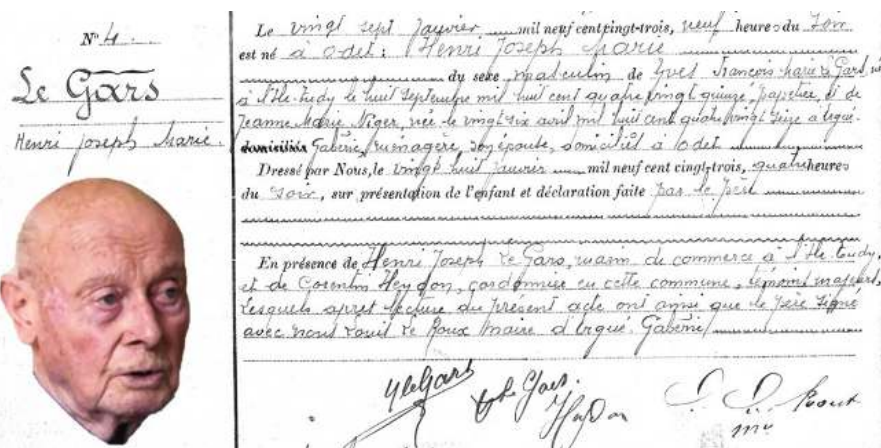 N° 4
Le Gars
Henri Joseph Marie.
Le vingt sept Janvier mil neuf cent vingt-trois, neuf heures du soir
est né à Odet : Henri Joseph Marie
du sexe masculin de Yves François Marie Le Gars, né
à l'Ile-Tudy le huit Septembre mil huit cent quatre vingt quinze, papetier, et de
Jeanne Marie Niger, née le vingt six avril mil huit cent quatre vingt seize à Ergué-
domiciliés Gabéric, ménagère, son épouse, domiciliés à Odet
Dressé par Nous, le vingt huit Janvier mil neuf cent vingt-trois, quatre heures
du soir, sur présentation de l'enfant et déclaration faite par le père
En présence de Henri Joseph Le Gars, marin de commerce à l'Ile Tudy,
et de Corentin Heydon, cordonnier en cette commune, témoins majeurs,
lesquels après lecture du présent acte ont ainsi que le père signé
avec nous Louis Le Roux maire d'Ergué-Gabéric
YleGars
Le Gars.
Heydon
Roux